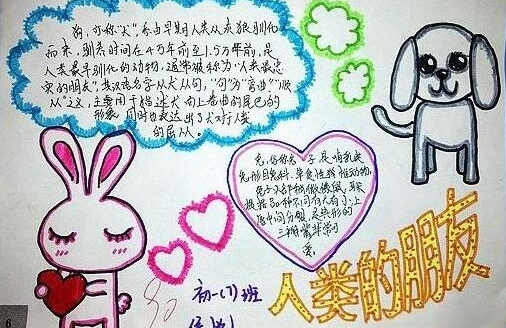 狗,亦称“犬”,系由早期人类从灰狼驯化
而来,驯养时间在4万年前至1.5万年前,是
人类最早驯化的动物。通常被称为“人类最忠
实的朋友”,其汉语名字从犬从句,“句”为“弯曲”“顺
从”之义,主要用于描述犬向上卷曲的尾巴的
形象,同时也表达出了犬对于人类
的屈从。
兔,俗称兔子是哺乳类
兔形目兔科,草食性脊椎动物。
根据品种不同有大有小,上
唇中间分裂,是典型的
三瓣嘴非常可
爱。
人类的朋友
初一(7)班
90
6